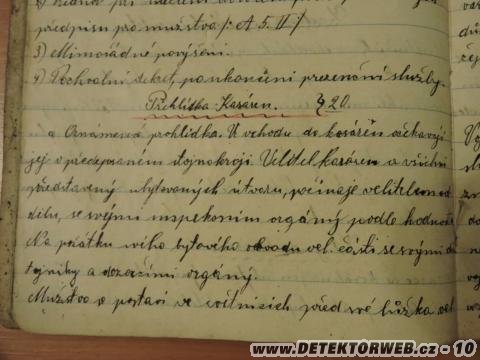 předpisu pro mužstvo /: A 5. II /
3) Mimořádné povýšení.
4) Pochvalní dekret, po ukončení prezenční služby.
Přehlídka Kasáren. § 20.
a Oznámená prohlídka. U vchodu do kasáren očekávají
jej v předepsaném stejnokroji Velitel kasáren a všichni
představený ubytovaných útvarů, počínaje velitelem od
dílu, se svými inspekčním orgány podle hodnosti
Na počátku svého bytového obvodu vel. části se svými dů
stojníky a dozorčími orgány.
Mužstvo se postaví ve světnicích před své lůžka vel
WWW.DETEKTORWEB.cz - 10